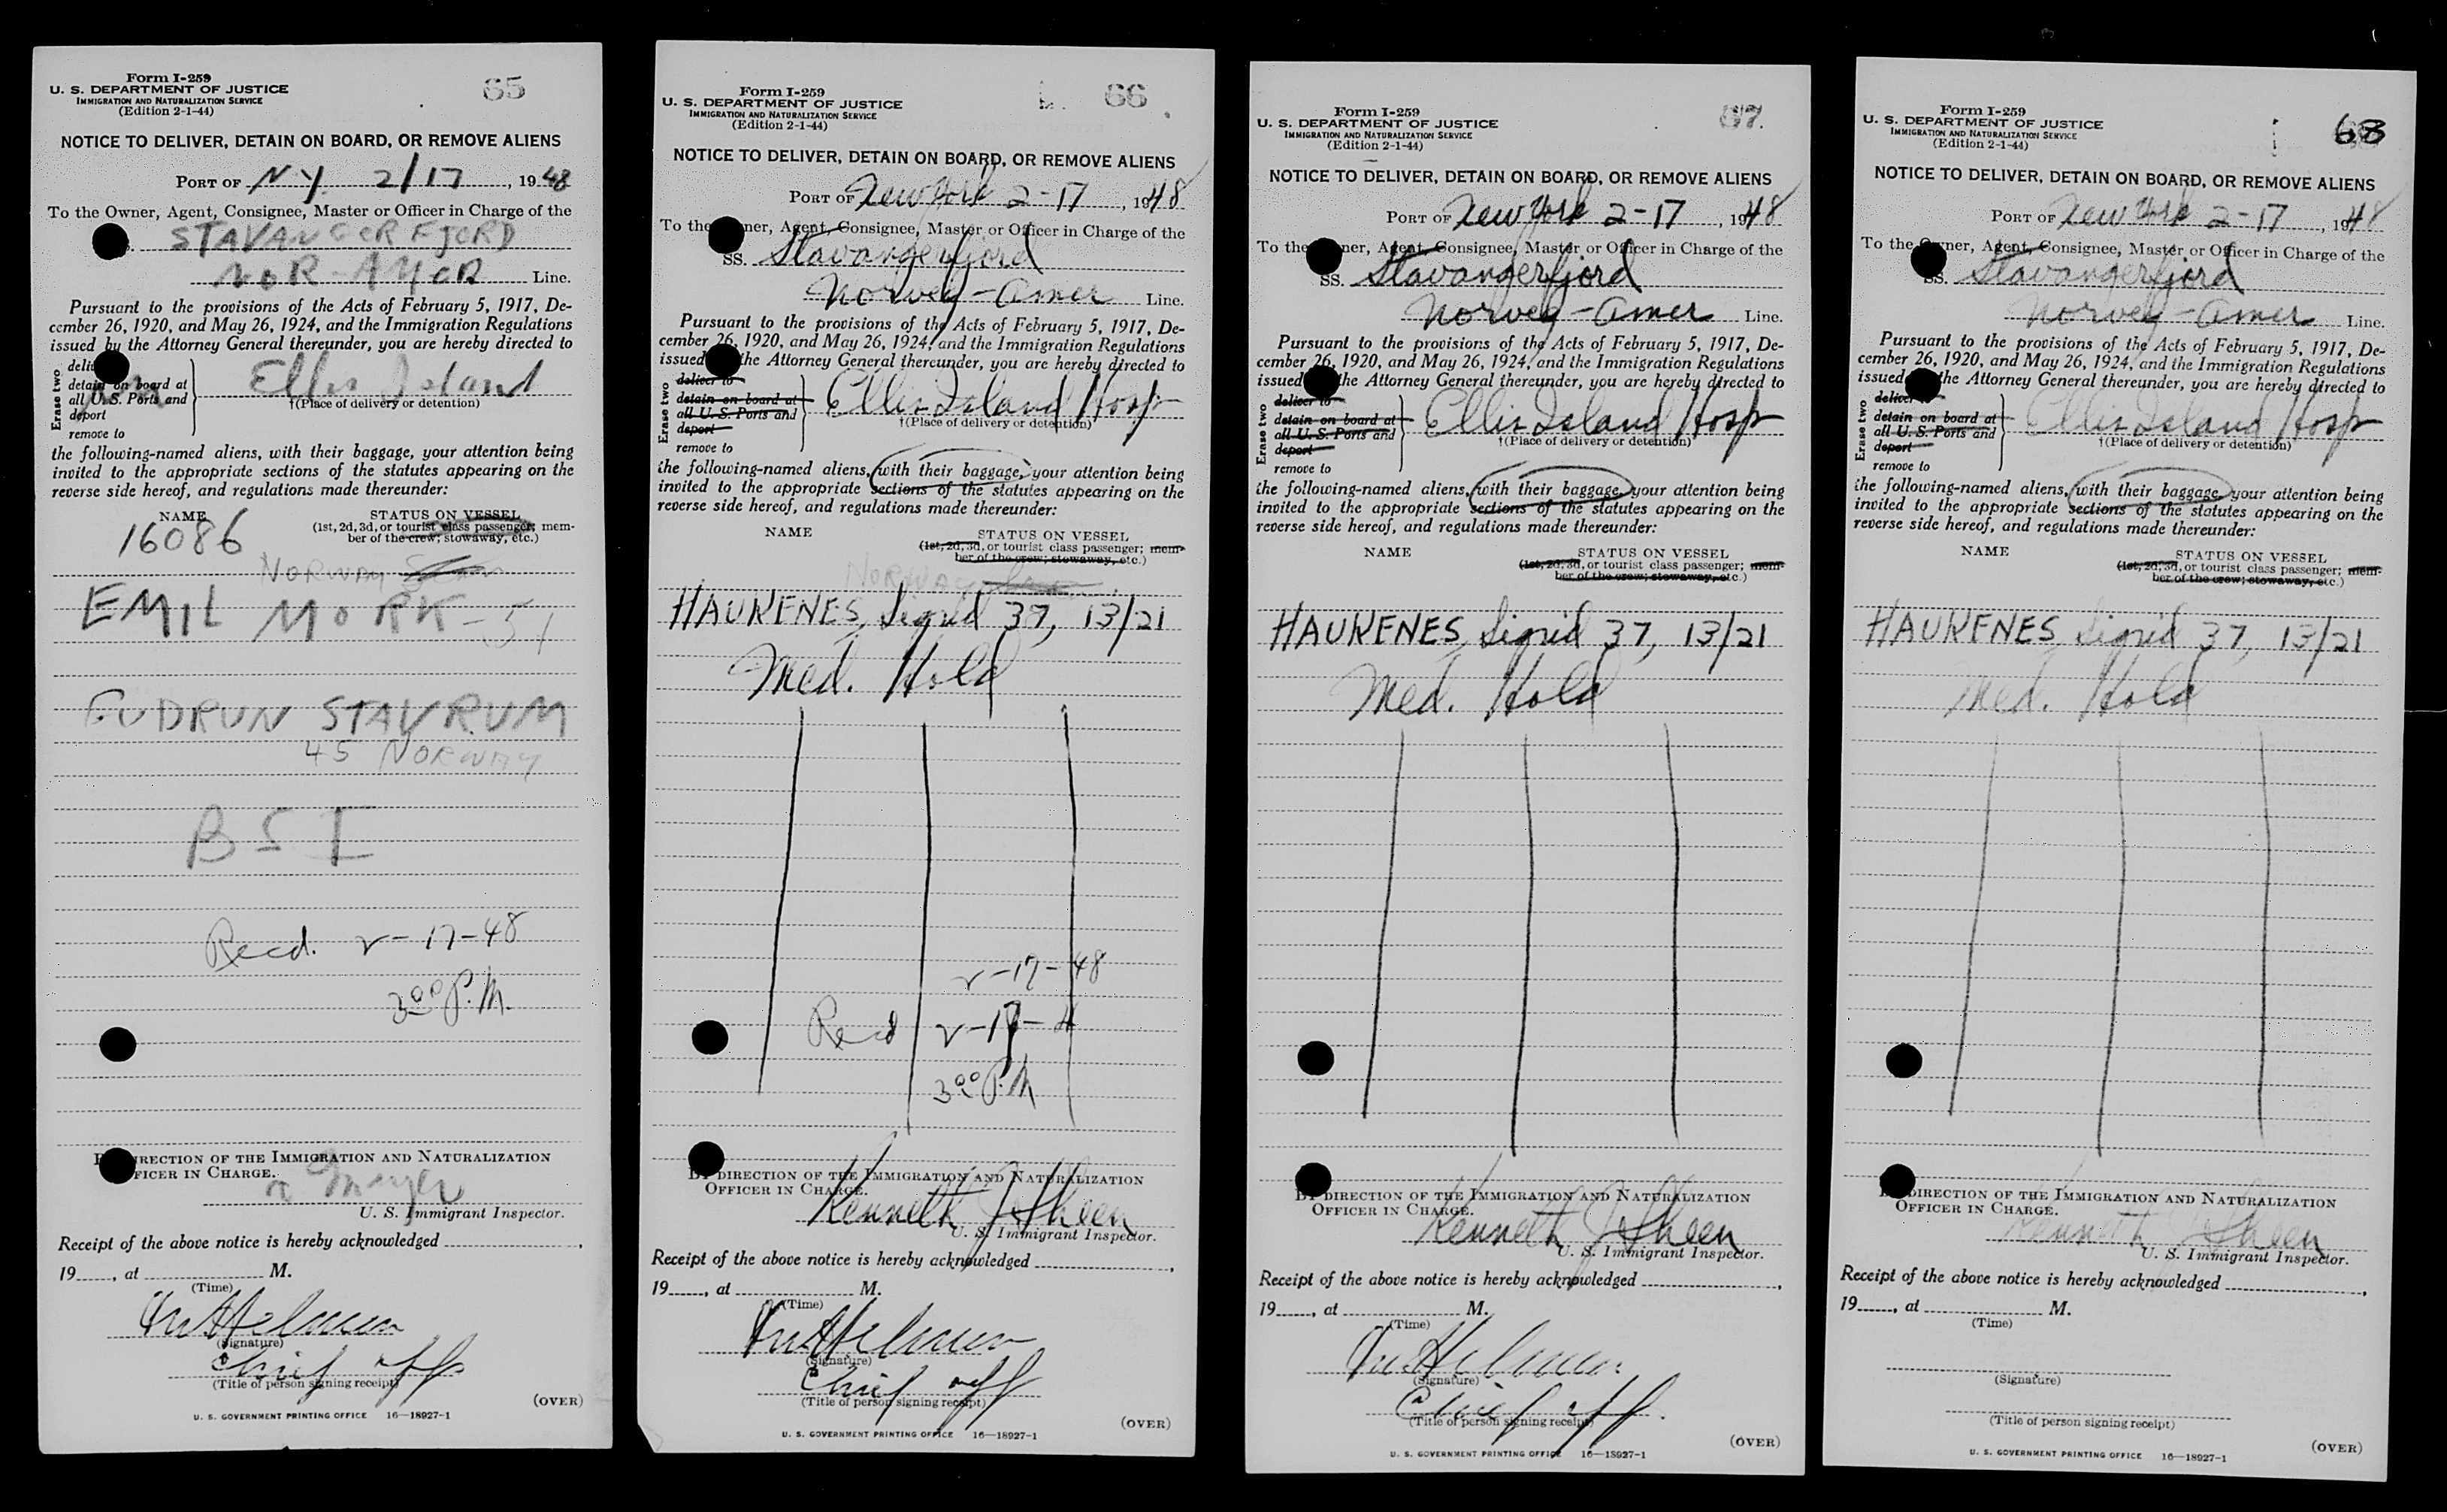 65
Form I-259
U. S. DEPARTMENT OF JUSTICE
IMMIGRATION AND NATURALIZATION SERVICE
(Edition 2-1-44)
NOTICE TO DELIVER, DETAIN ON BOARD, OR REMOVE ALIENS
PORT OF N Y. 2/17, 1948
To the Owner, Agent, Consignee, Master or Officer in Charge of the
STAVANGERFJORD
NOR-AMER Line.
Pursuant to the provisions of the Acts of February 5, 1917, De-
cember 26, 1920, and May 26, 1924, and the Immigration Regulations
issued by the Attorney General thereunder, you are hereby directed to
Erase two
deli
detain on board at
all U. S. Ports and
deport
remove to
Ellis Island
†(Place of delivery or detention)
the following-named aliens, with their baggage, your attention being
invited to the appropriate sections of the statutes appearing on the
reverse side hereof, and regulations made thereunder:
NAME STATUS ON VESSEL
16086 (1st, 2d, 3d, or tourist class passenger; mem-
ber of the crew; stowaway, etc.)
NORWAY
EMIL MORK - 51
GUDRUN STAVRUM
45 NORWAY
B S I
Recd. 2-17-48
3 00 P.M.
DIRECTION OF THE IMMIGRATION AND NATURALIZATION
FICER IN CHARGE.
U. S. Immigrant Inspector.
Receipt of the above notice is hereby acknowledged
19, at M.
(Time)
(Signature)
Chief off
(Title of person signing receipt)
(OVER)
U. S. GOVERNMENT PRINTING OFFICE 16—18927-1
66
Form I-259
U. S. DEPARTMENT OF JUSTICE
IMMIGRATION AND NATURALIZATION SERVICE
(Edition 2-1-44)
NOTICE TO DELIVER, DETAIN ON BOARD, OR REMOVE ALIENS
PORT OF New York 2-17, 1948
To the ner, Agent, Consignee, Master or Officer in Charge of the
SS. Stavangerfjord
Norweg-Amer Line.
Pursuant to the provisions of the Acts of February 5, 1917, De-
cember 26, 1920, and May 26, 1924, and the Immigration Regulations
issued the Attorney General thereunder, you are hereby directed to
Erase two
deliver to
detain on board at
all U. S. Ports and
deport
remove to
Ellis Island Hosp
†(Place of delivery or detention)
the following-named aliens, with their baggage, your attention being
invited to the appropriate sections of the statutes appearing on the
reverse side hereof, and regulations made thereunder:
NAME STATUS ON VESSEL
(1st, 2d, 3d, or tourist class passenger; mem-
ber of the crew; stowaway, etc.)
NORWAY
HAUKENES, Sigrid 37, 13/21
Med. Hold
2-17-48
Recd 2-17-4
3 00 P.M
DIRECTION OF THE IMMIGRATION AND NATURALIZATION
OFFICER IN CHARGE.
Kenneth J Sheen
U. S. Immigrant Inspector.
Receipt of the above notice is hereby acknowledged
19, at M.
(Time)
(Signature)
Chief off
(Title of person signing receipt)
(OVER)
U. S. GOVERNMENT PRINTING OFFICE 16—18927-1
67.
Form I-259
U. S. DEPARTMENT OF JUSTICE
IMMIGRATION AND NATURALIZATION SERVICE
(Edition 2-1-44)
NOTICE TO DELIVER, DETAIN ON BOARD, OR REMOVE ALIENS
PORT OF New York 2-17, 1948
To the ner, Agent, Consignee, Master or Officer in Charge of the
SS. Stavangerfjord
Norweg-Amer Line.
Pursuant to the provisions of the Acts of February 5, 1917, De-
cember 26, 1920, and May 26, 1924, and the Immigration Regulations
issued the Attorney General thereunder, you are hereby directed to
Erase two
deliver to
detain on board at
all U. S. Ports and
deport
remove to
Ellis Island Hosp
†(Place of delivery or detention)
the following-named aliens, with their baggage, your attention being
invited to the appropriate sections of the statutes appearing on the
reverse side hereof, and regulations made thereunder:
NAME STATUS ON VESSEL
(1st, 2d, 3d, or tourist class passenger; mem-
ber of the crew; stowaway, etc.)
HAUKENES, Sigrid 37, 13/21
Med. Hold
DIRECTION OF THE IMMIGRATION AND NATURALIZATION
OFFICER IN CHARGE.
Kenneth J Sheen
U. S. Immigrant Inspector.
Receipt of the above notice is hereby acknowledged
19, at M.
(Time)
(Signature)
Chief off.
(Title of person signing receipt)
(OVER)
U. S. GOVERNMENT PRINTING OFFICE 16—18927-1
68
Form I-259
U. S. DEPARTMENT OF JUSTICE
IMMIGRATION AND NATURALIZATION SERVICE
(Edition 2-1-44)
NOTICE TO DELIVER, DETAIN ON BOARD, OR REMOVE ALIENS
PORT OF New York 2-17, 1948
To the Owner, Agent, Consignee, Master or Officer in Charge of the
SS. Stavangerfjord
Norweg-Amer Line.
Pursuant to the provisions of the Acts of February 5, 1917, De-
cember 26, 1920, and May 26, 1924, and the Immigration Regulations
issued the Attorney General thereunder, you are hereby directed to
Erase two
deliver to
detain on board at
all U. S. Ports and
deport
remove to
Ellis Island Hosp
†(Place of delivery or detention)
the following-named aliens, with their baggage, your attention being
invited to the appropriate sections of the statutes appearing on the
reverse side hereof, and regulations made thereunder:
NAME STATUS ON VESSEL
(1st, 2d, 3d, or tourist class passenger; mem-
ber of the crew; stowaway, etc.)
HAUKENES, Sigrid 37, 13/21
Med. Hold
DIRECTION OF THE IMMIGRATION AND NATURALIZATION
OFFICER IN CHARGE.
Kenneth J Sheen
U. S. Immigrant Inspector.
Receipt of the above notice is hereby acknowledged
19, at M.
(Time)
(Signature)
(Title of person signing receipt)
(OVER)
U. S. GOVERNMENT PRINTING OFFICE 16—18927-1